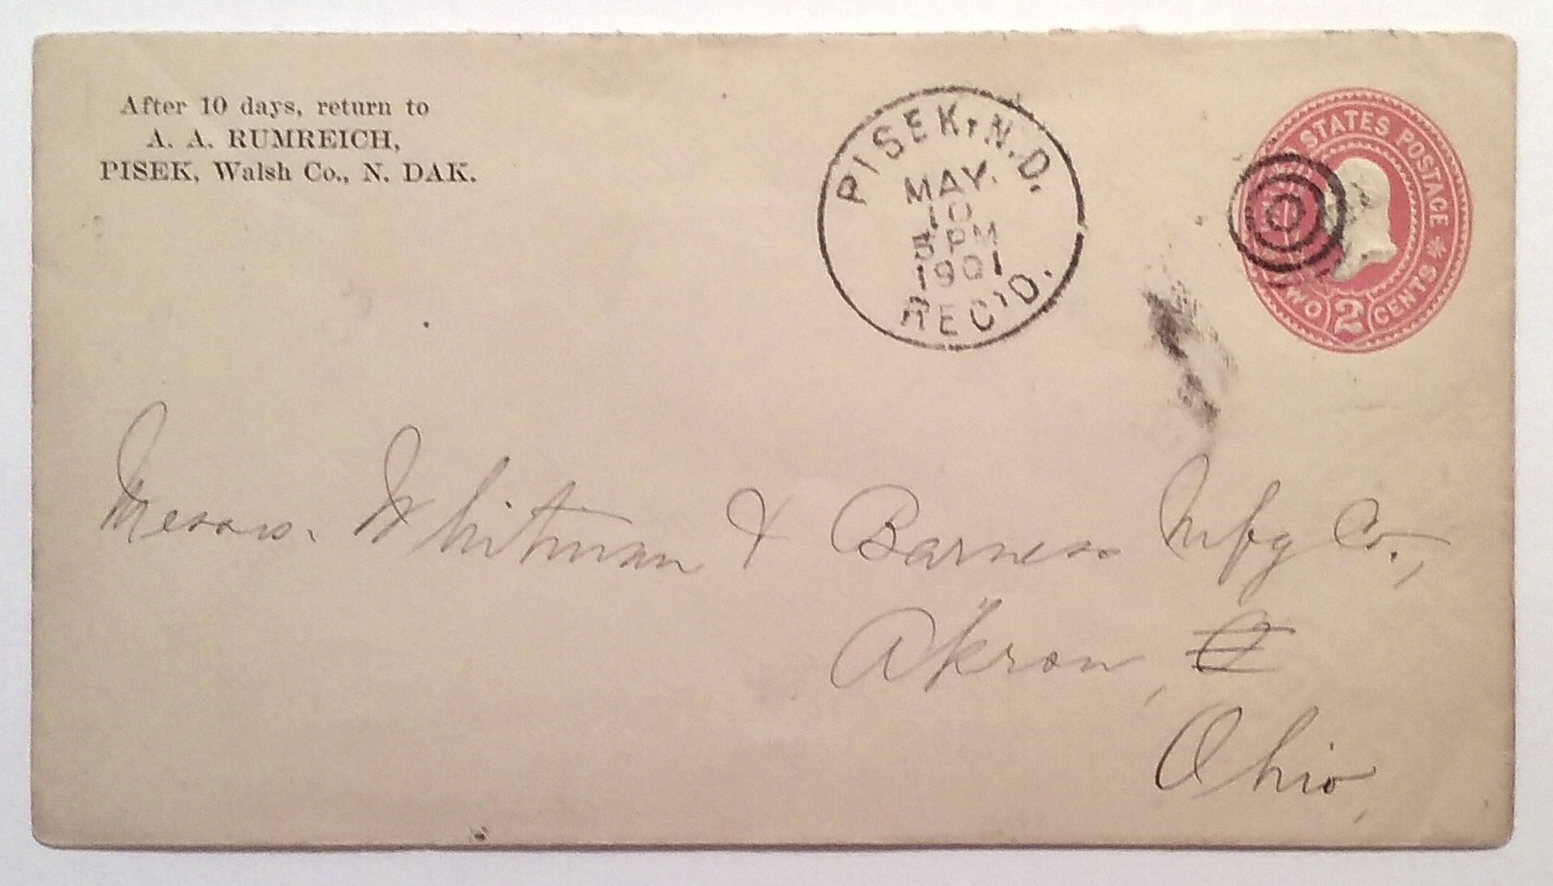 After 10 days, return to
A. A. RUMREICH,
PISEK, Walsh Co., N. DAK.
PISEK, N.D.
MAY.
10
5 PM
1901
REC'D.
STATES POSTAGE
TWO 2 CENTS
Messrs. Whitman & Barnes Mfg Co.,
Akron, O
Ohio,